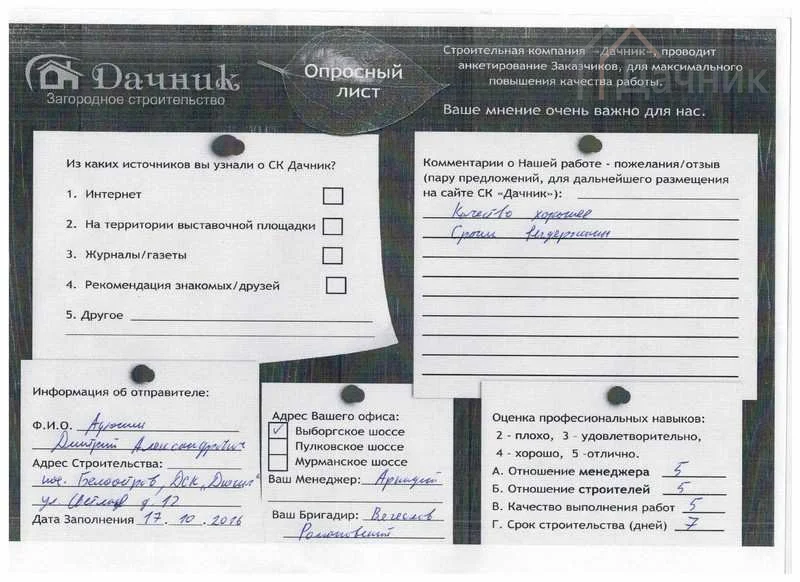 Дачник
Загородное строительство
Опросный
лист
Строительная компания «Дачник», проводит
анкетирование Заказчиков, для максимального
повышения качества работы.
Дачник
Ваше мнение очень важно для нас.
Из каких источников вы узнали о СК Дачник?
1. Интернет
2. На территории выставочной площадки
3. Журналы/газеты
4. Рекомендация знакомых/друзей
5. Другое
Комментарии о Нашей работе - пожелания/отзыв
(пару предложений, для дальнейшего размещения
на сайте СК «Дачник»):
Качество хорошее
Сроки выдержаны
Информация об отправителе:
Ф.И.О.
Дмитрий Александрович
Адрес Строительства:
пос. Белоостров, ДСК „Дюны"
ул Светлая д 12
Дата Заполнения 17 . 10 . 2016
Адрес Вашего офиса:
✓ Выборгское шоссе
Пулковское шоссе
Мурманское шоссе
Ваш Менеджер: Аркадий
Ваш Бригадир:
Романовский
Оценка професиональных навыков:
2 - плохо, 3 - удовлетворительно,
4 - хорошо, 5 -отлично.
А. Отношение менеджера 5
Б. Отношение строителей 5
В. Качество выполнения работ 5
Г. Срок строительства (дней) 7